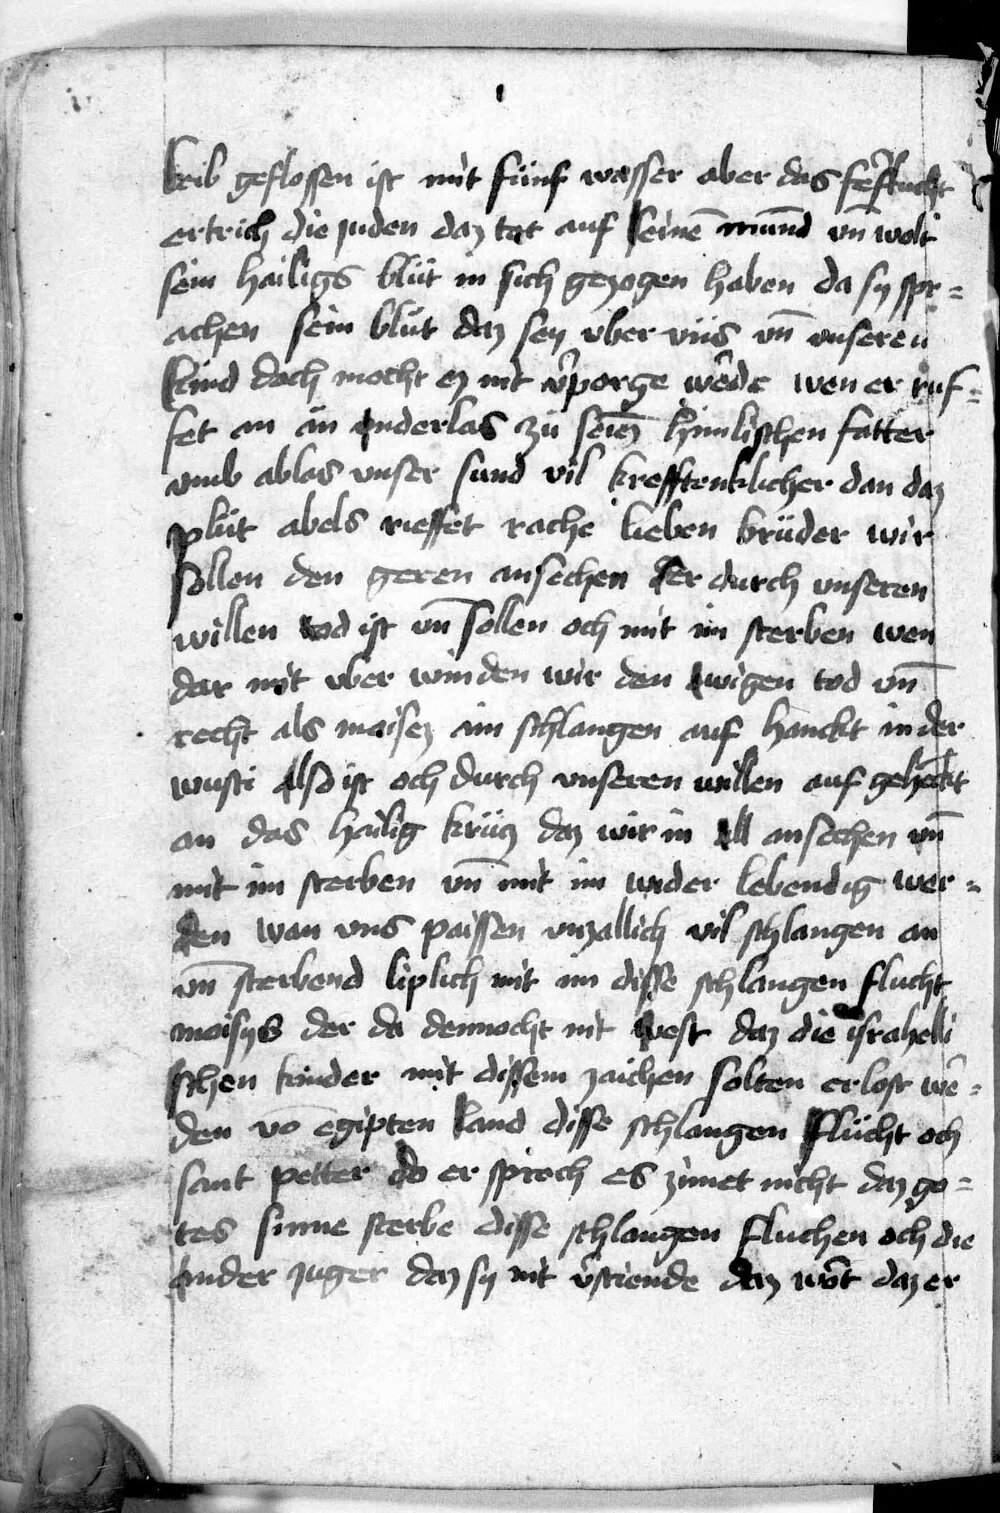 leib geflossen ist mit fünf wasser aber das feˀflucht
ertrich die juden daz tet auf seinē mūnd vn̄ wolt
sein hailigs blüt in sich gezogen haben da sy spr=
achen sein blüt daz sey vber vns vn̄ vnseren
kind doch mocht ez nit v̂porge wêde wen er ruf=
fet an ān vnderlas zü seinē himlischen fatter
vmb ablas vnser sund vil krefftenklicher dan daz
plüt abels rieffet rache lieben brüder wir
sollen den geren ansechen der durch vnseren
willen tod ist vn̄ sollen och mit im sterben wen
dar mit vber winden wir den ewigen tod vn̄
recht als moisez ain schlangen auf hanckt in der
wusti also ist och durch vnseren willen auf gehēckt
an das hailig krüz daz wir in all ansechen vn̄
mit im sterben vn̄ mit im wider lebendig wer=
den wan vns paissen vnzallich vil schlangen an
vn̄ sterbend liplich mit im disse schlangen flucht
moisys der da dennocht nit west daz die israhelli
schen kinder mit dissem zaichen solten erlost wê=
den vō egipten land disse schlangen flücht och
sant petter do er sproch es zimet nicht daz go=
tes sunne sterbe disse schlangen fluchen och die
ander juger daz sy nit v̂stiende daz wôt daz er